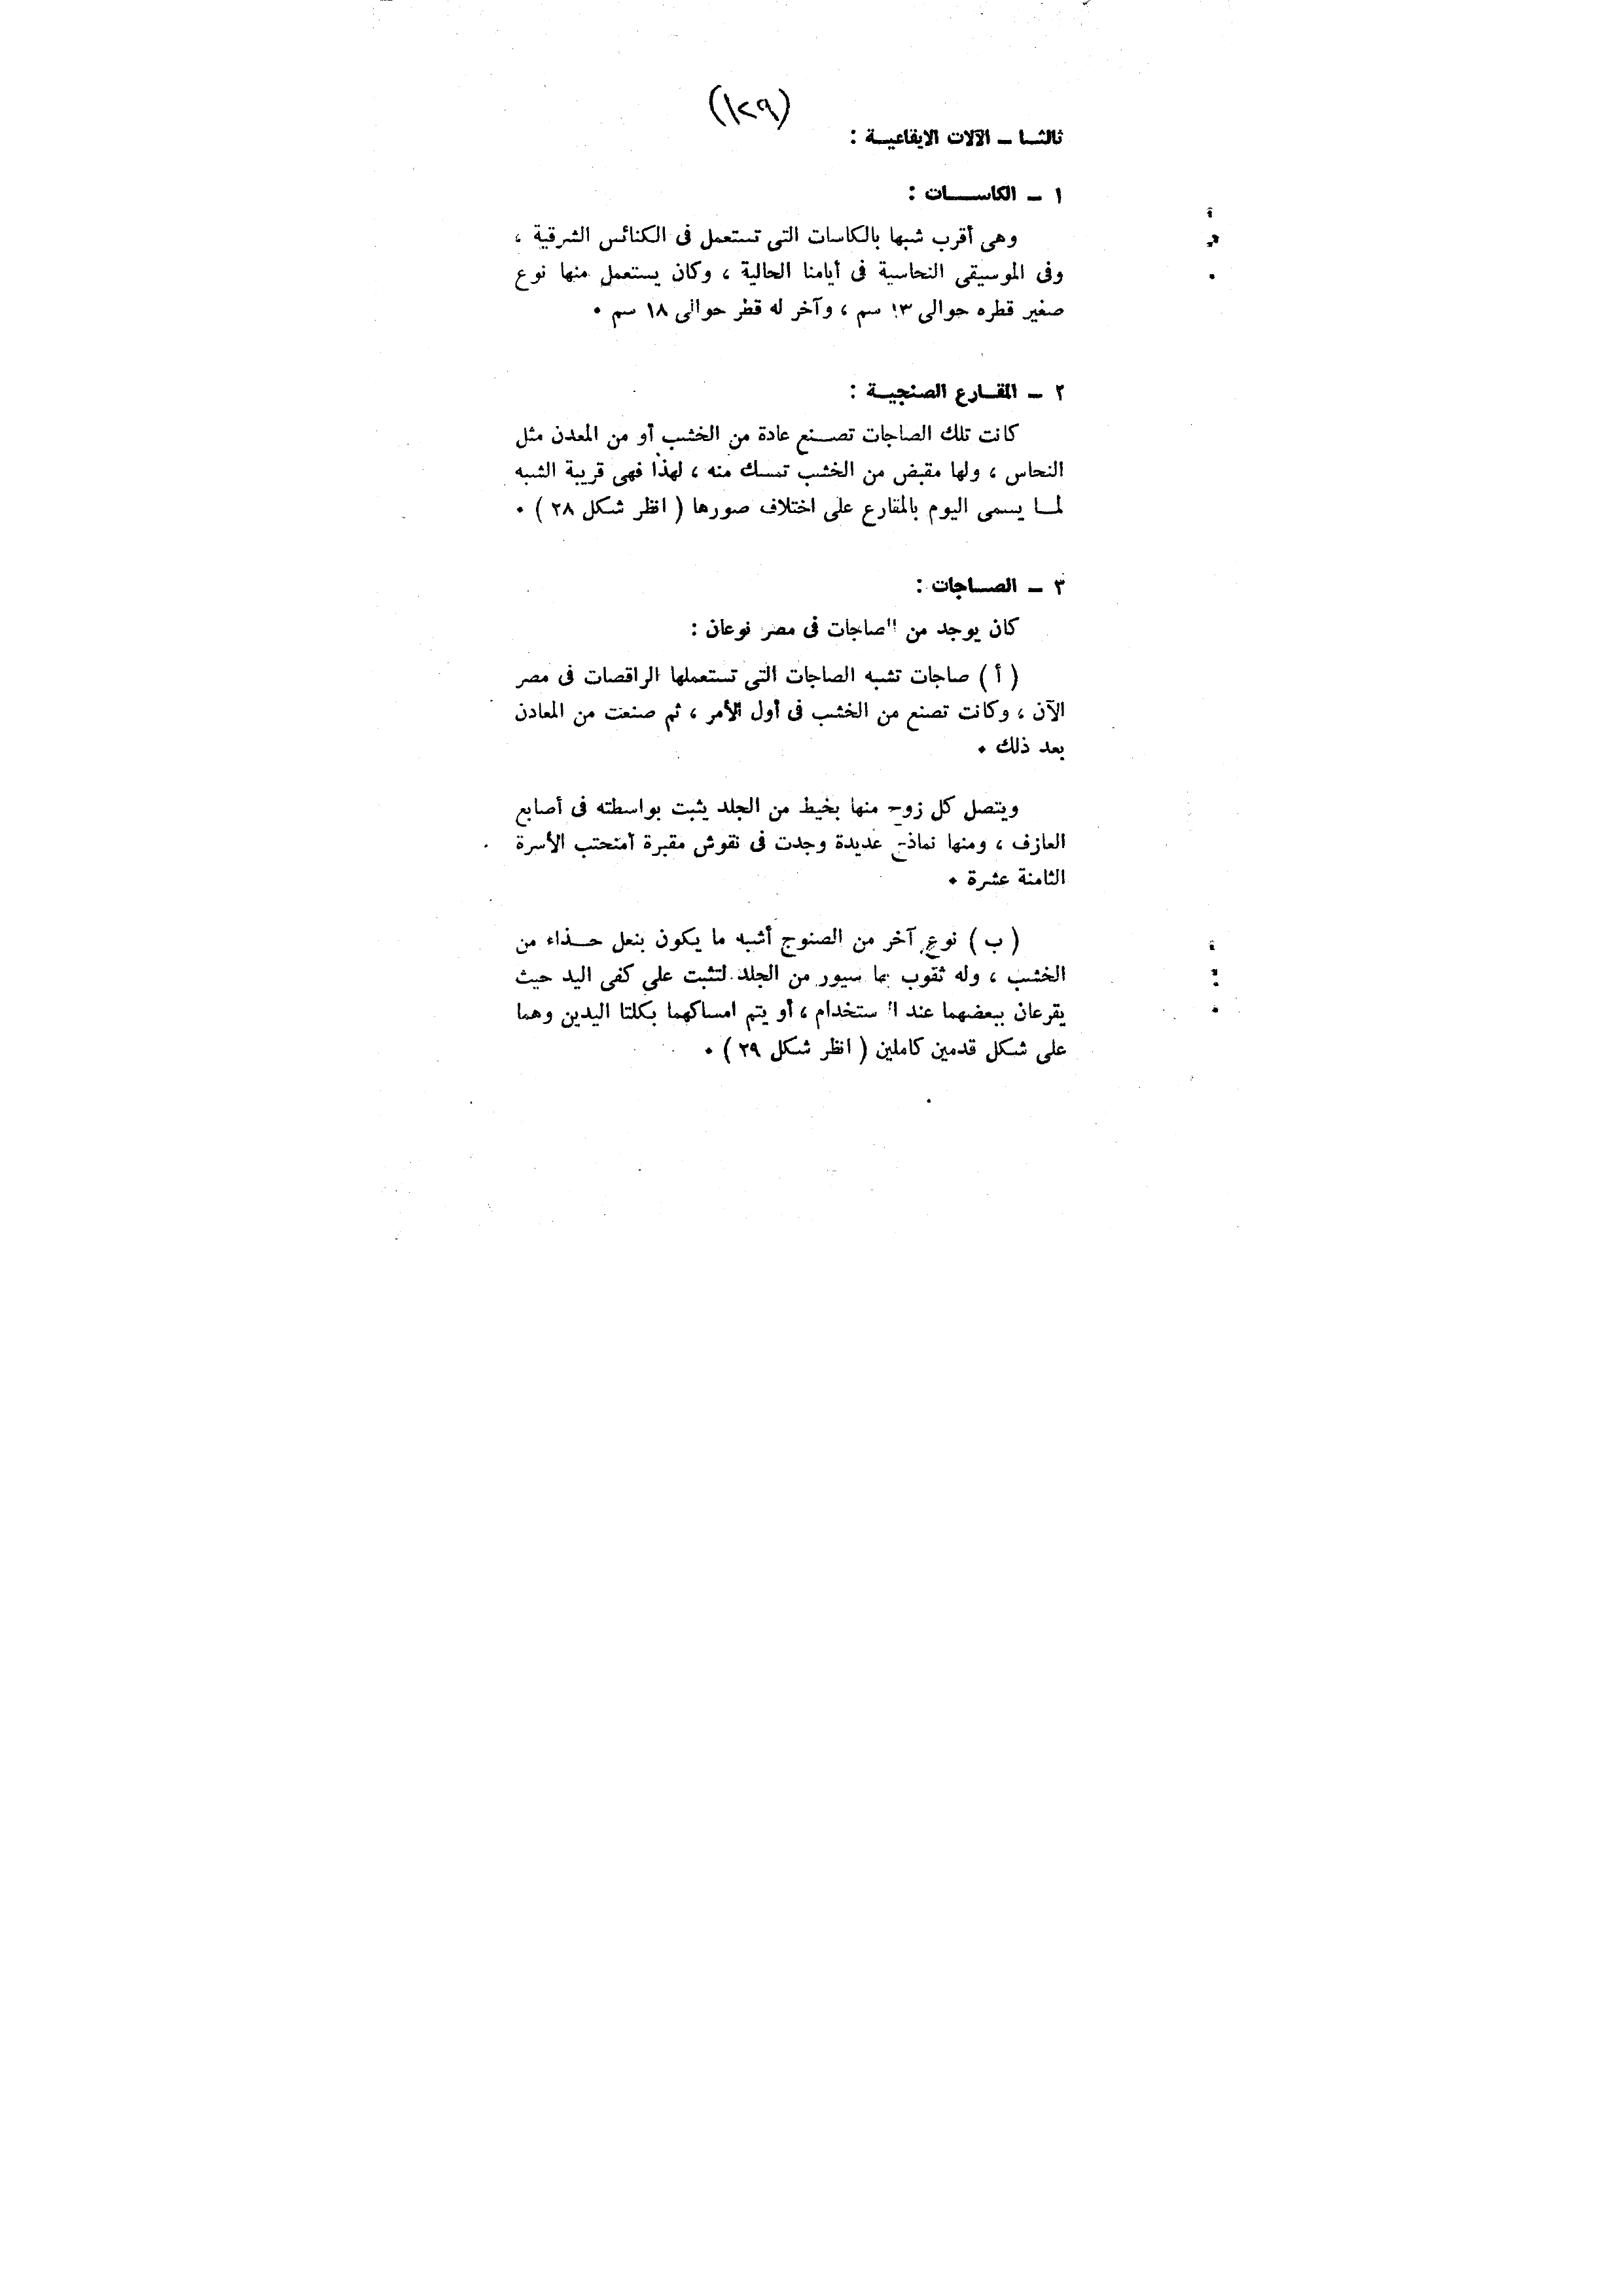 (١٢٩)
ثالثـا ــ الآلات الايقاعيـة :
١ ــ الكاســـات :
وهى أقرب شبها بالكاسات التى تستعمل فى الكنائس الشرقية ،
وفى الموسيقى النحاسية فى أيامنا الحالية ، وكان يستعمل منها نوع
صغير قطره حوالى ١٣ سم ، وآخر له قطر حوالى ١٨ سم ٠
٢ ــ المقـارع الصنجيـة :
كانت تلك الصاجات تصـنع عادة من الخشب أو من المعدن مثل
النحاس ، ولها مقبض من الخشب تمسك منه ، لهذا فهى قريبة الشبه
لمـا يسمى اليوم بالمقارع على اختلاف صورها ( انظر شكل ٢٨ ) ٠
٣ ــ الصـاجات :
كان يوجد من الصاجات فى مصر نوعان :
( أ ) صاجات تشبه الصاجات التى تستعملها الراقصات فى مصر
الآن ، وكانت تصنع من الخشب فى أول الأمر ، ثم صنعت من المعادن
بعد ذلك ٠
ويتصل كل زوج منها بخيط من الجلد يثبت بواسطته فى أصابع
العازف ، ومنها نماذج عديدة وجدت فى نقوش مقبرة أمنحتب الأسرة
الثامنة عشرة ٠
( ب ) نوع آخر من الصنوج أشبه ما يكون بنعل حـذاء من
الخشب ، وله ثقوب بها سيور من الجلد لتثبت على كفى اليد حيث
يقرعان ببعضهما عند الاستخدام ، أو يتم امساكهما بكلتا اليدين وهما
على شكل قدمين كاملين ( انظر شكل ٢٩ ) ٠